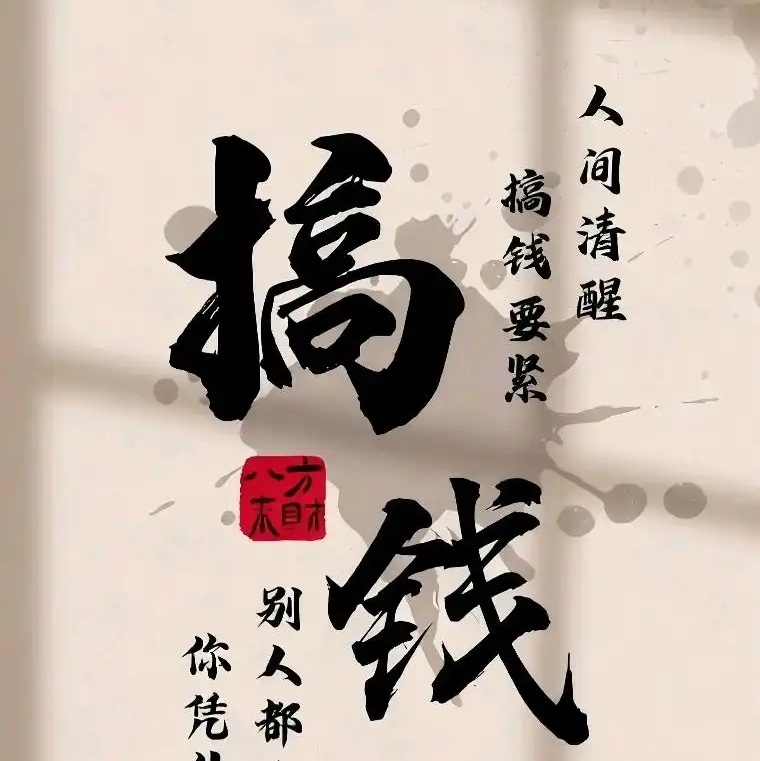 人间清醒
搞钱要紧
搞钱
八方来财
别人都
你凭